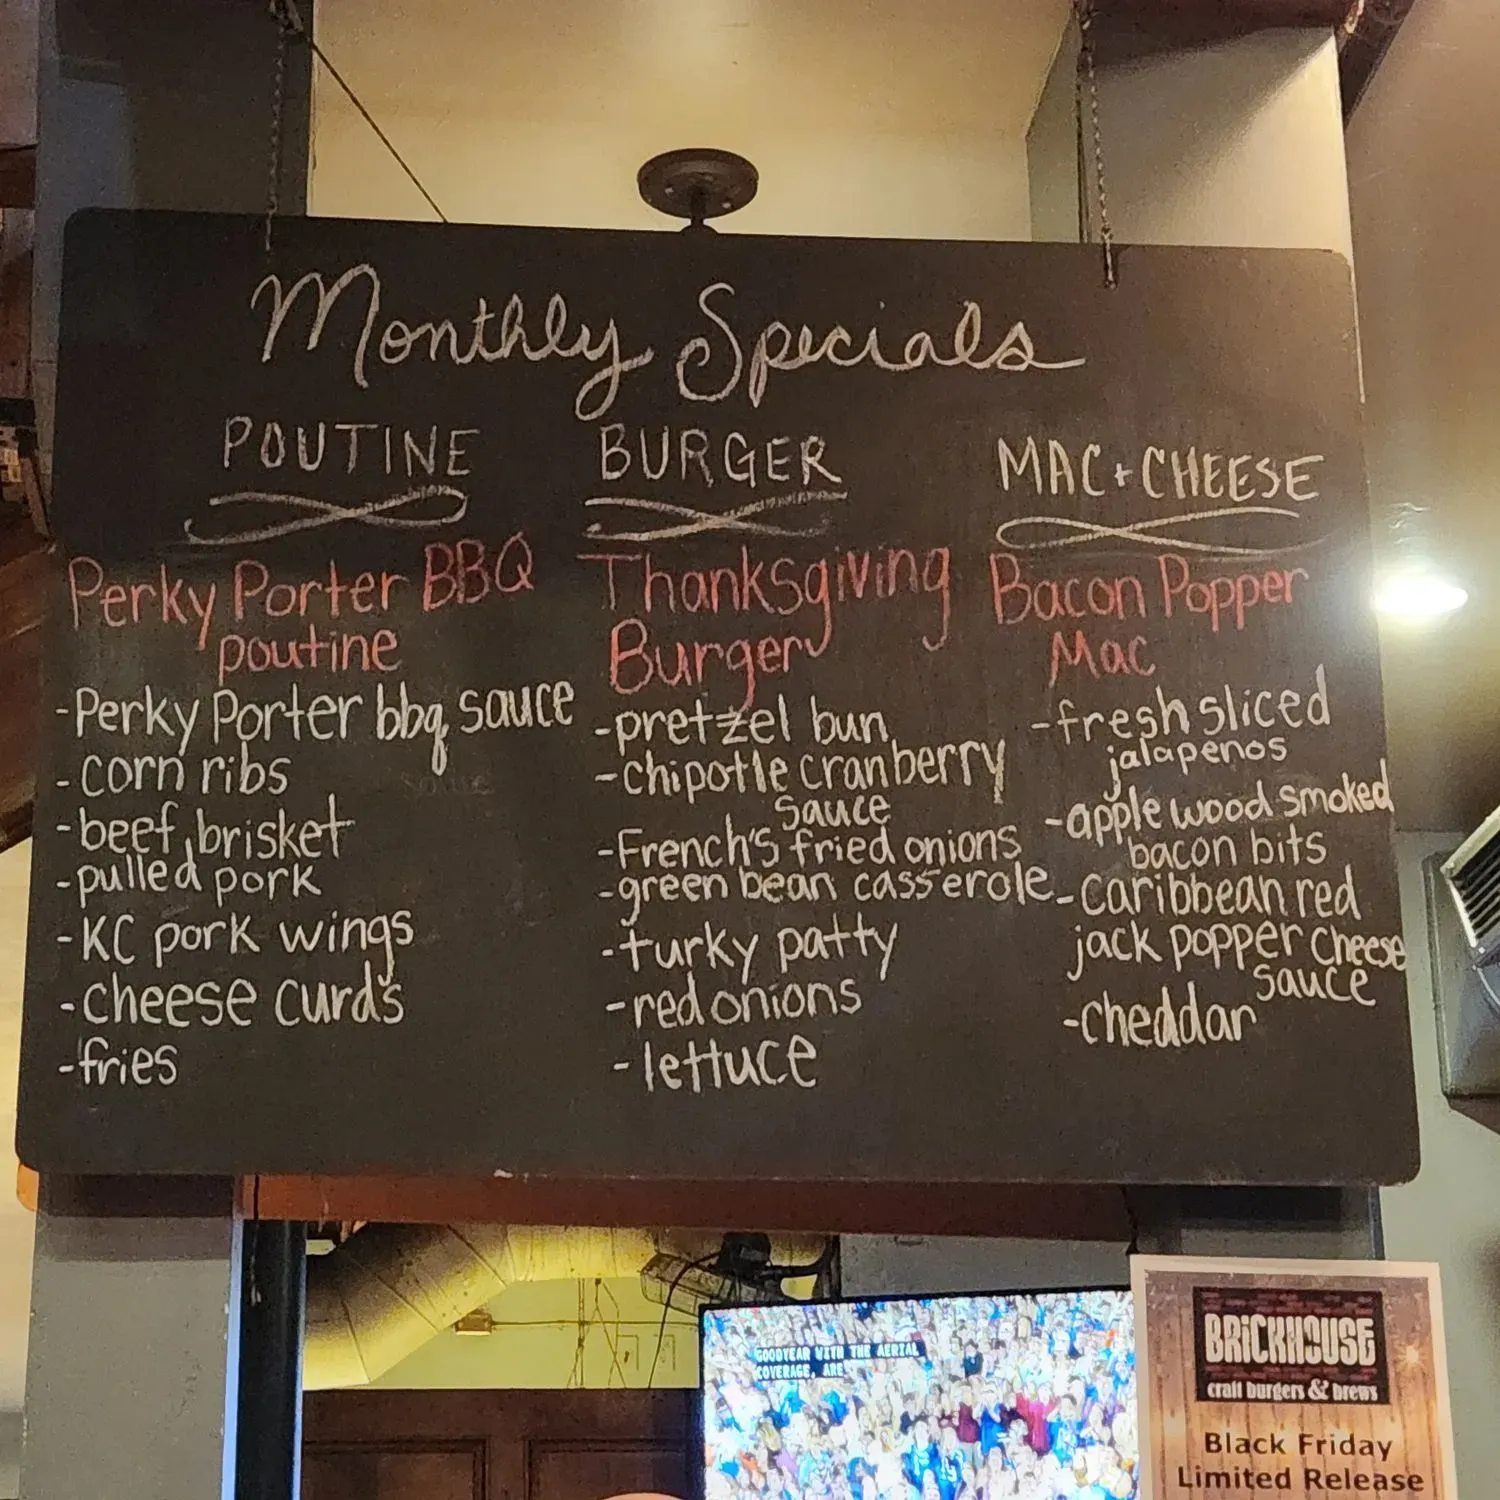 Monthly Specials
POUTINE
Perky Porter BBQ
poutine
-Perky Porter bbq sauce
-corn ribs
-beef brisket
-pulled pork
-KC pork wings
-cheese curds
-fries
BURGER
Thanksgiving
Burger
-pretzel bun
-chipotle cranberry
sauce
-French's fried onions
-green bean casserole
-turky patty
-red onions
-lettuce
MAC+CHEESE
Bacon Popper
Mac
-fresh sliced
jalapenos
-apple wood smoked
bacon bits
-Caribbean red
jack popper cheese
sauce
-cheddar
GOODYEAR WITH THE AERIAL
COVERAGE, ARE
BRICKHOUSE
craft burgers & brews
Black Friday
Limited Release